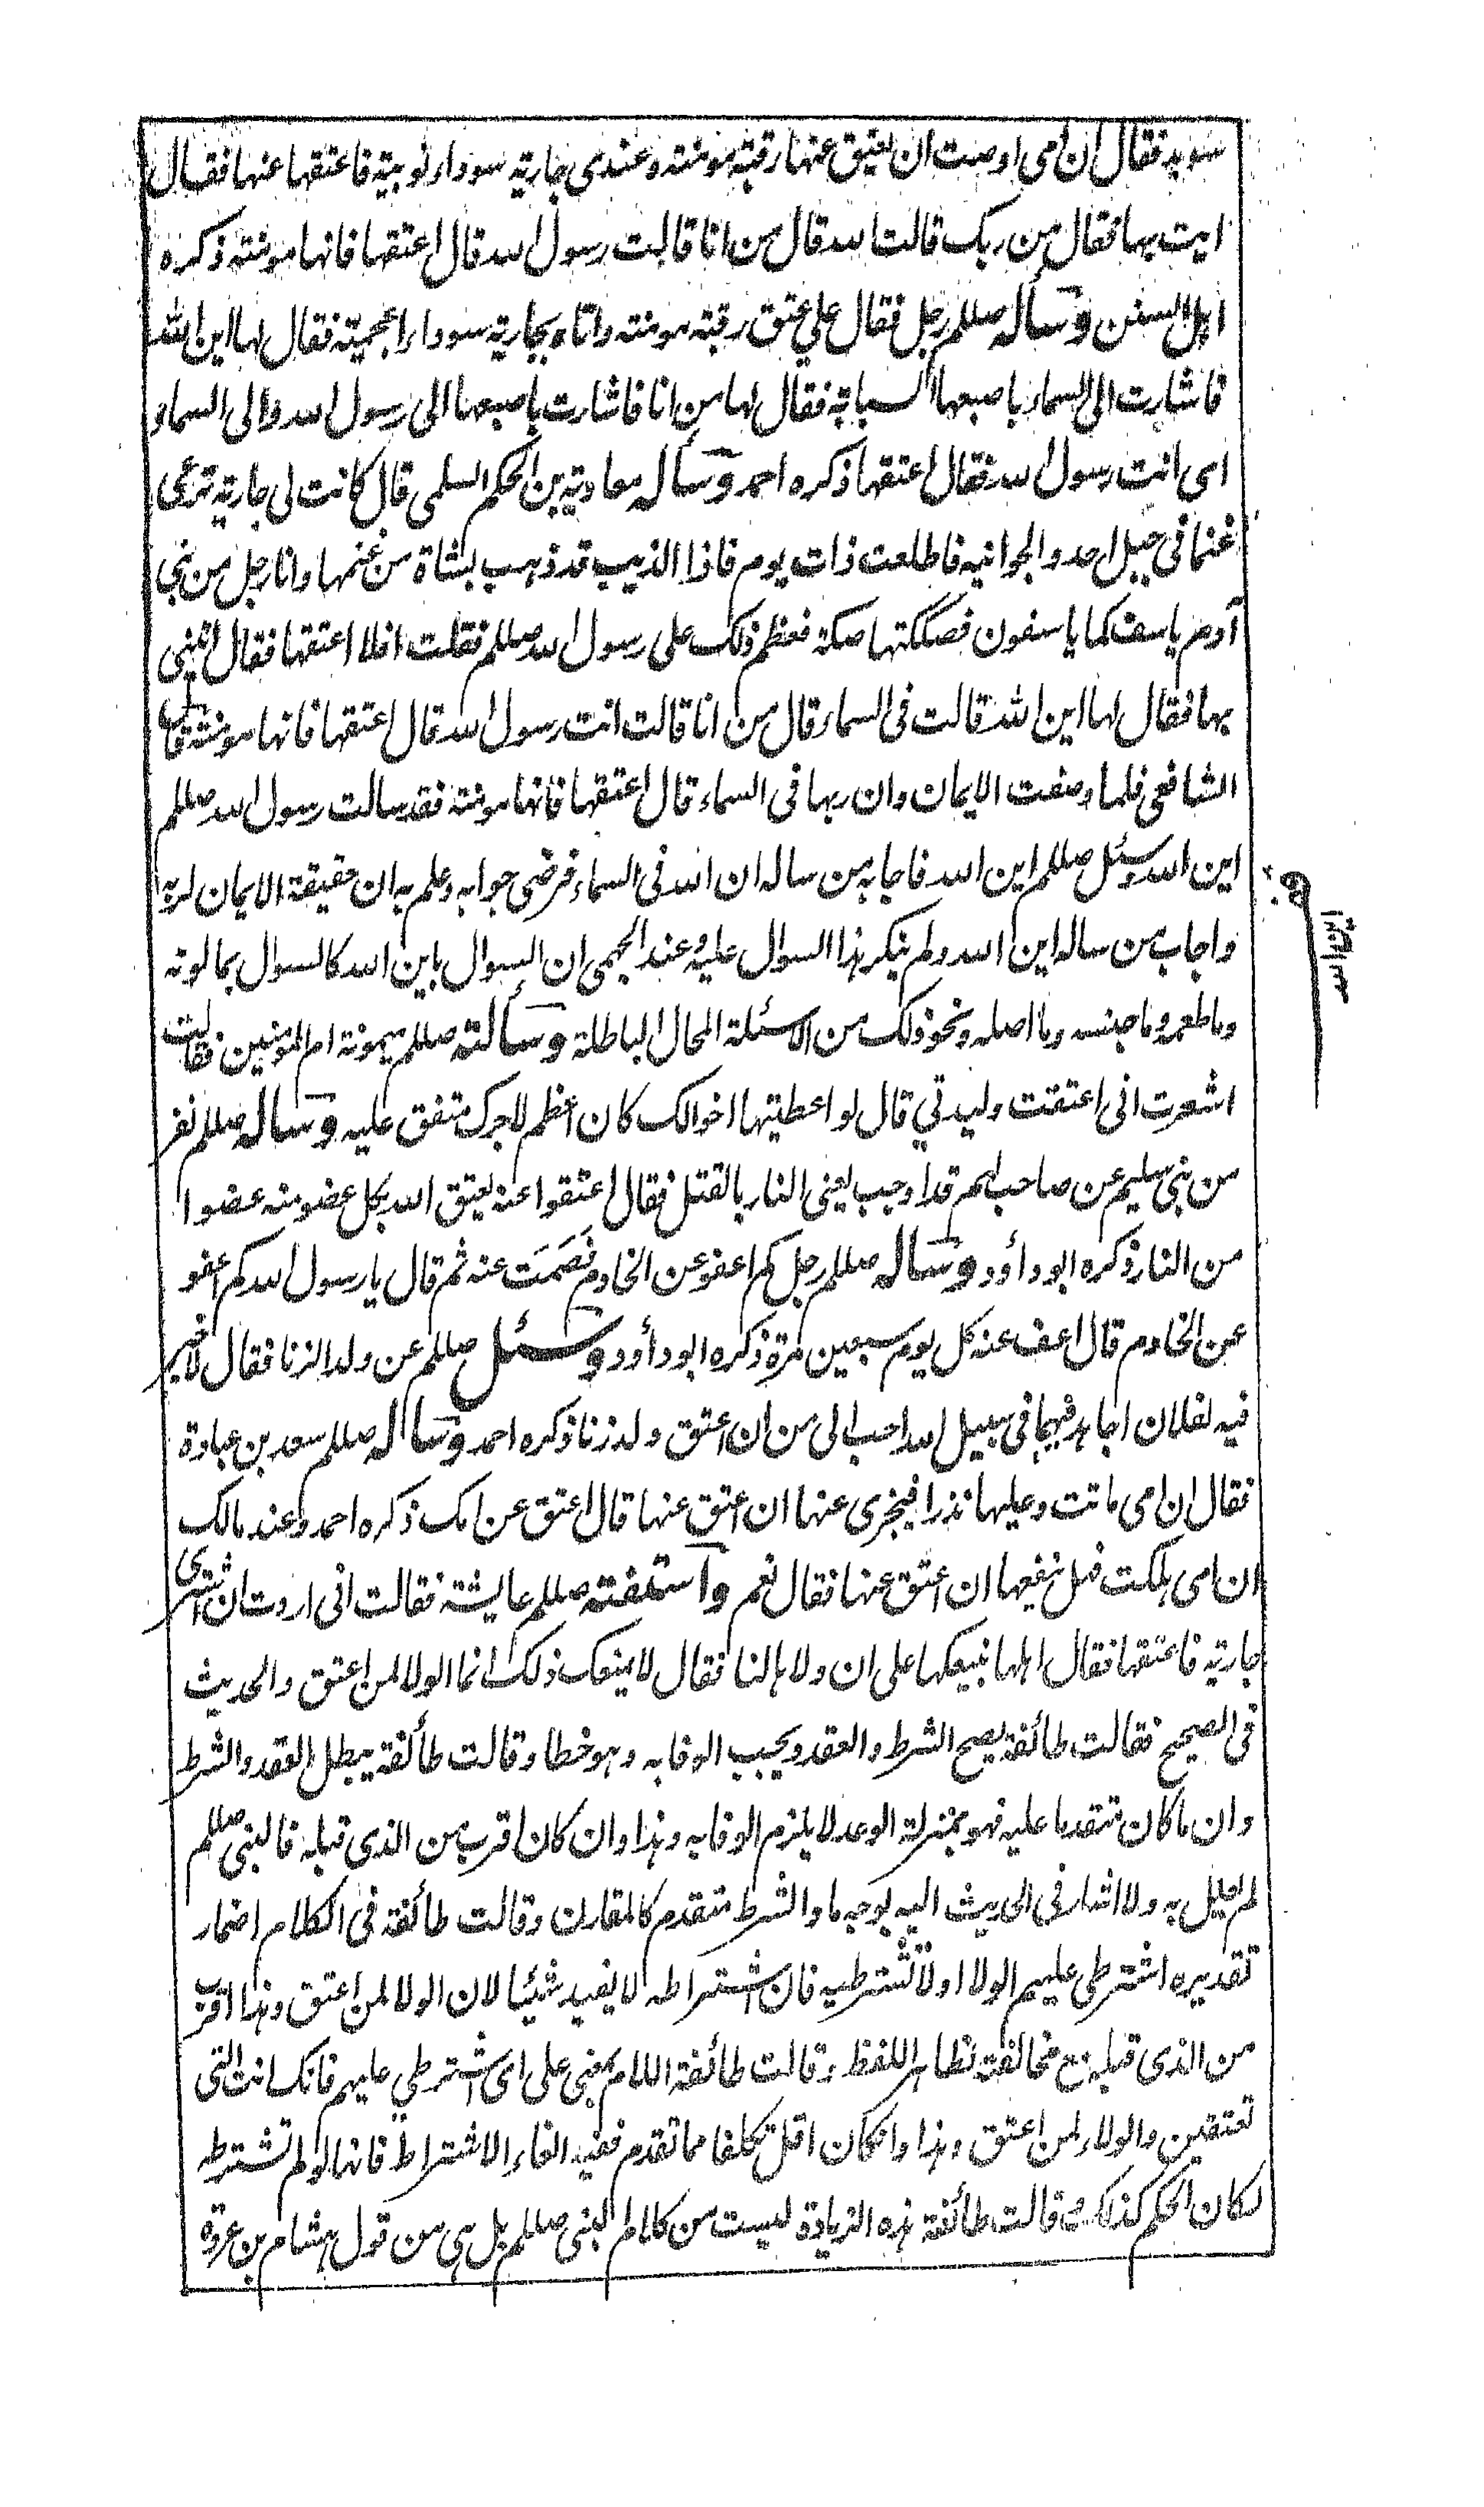 سويد فقال ان امى اوصت ان يعتق عنها رقبة مومنة وعندى جارية سوداء نوبية فاعتقها عنها فقال
ايت بها فقال من ربك قالت الله قال من انا قالت رسول الله قال اعتقها فانها مومنة ذكره
اهل السنن وسأله صللم رجل فقال علي عتق رقبة مومنة واتاه بجارية سوداء اعجمية فقال لها اين الله
فاشارت الى السماء باصبعها السبابة فقال لها من انا فاشارت باصبعها الى رسول الله والى السماء
اى انت رسول الله فقال اعتقها ذكره احمد وسأله معاوية بن الحكم السلمى قال كانت لى جارية ترعى
غنما فى جبل احد والجوانية فاطلعت ذات يوم فاذا الذيب قد ذهب بشاة من غنمها وانا رجل من بنى
آدم ياسف كما ياسفون فصككتها صكة فعظم ذلك على رسول الله صللم فقلت افلا اعتقها فقال ائتنى
بها فقال لها اين الله قالت فى السماء قال من انا قالت انت رسول الله قال اعتقها فانها مومنة قال
الشافعى فلما وصفت الايمان وان ربها فى السماء قال اعتقها فانها مومنة فقد سالت رسول الله صللم
اين الله وسئل صللم اين الله فاجابه من ساله ان الله فى السماء فرضى جوابه وعلم به ان حقيقة الايمان لربه
واجاب من ساله اين الله ولم ينكر هذا السوال عليه وعند الجهمى ان السوال باين الله كالسوال بما لونه
وما طعمه وما جنسه وما اصله ونحو ذلك من الاسئلة المحال الباطلة وسألته صللم ميمونة ام المومنين فقالت
اشعرت انى اعتقت وليدتي قال لو اعطيتها اخوالك كان اعظم لاجرك متفق عليه وسأله صللم نفر
من بنى سليم عن صاحب لهم قد اوجب يعنى النار بالقتل فقال اعتقوا عنه يعتق الله بكل عضو منه عضوا
من النار ذكره ابو داؤد وسأله صللم رجل كم اعفو عن الخادم فصمت عنه ثم قال يا رسول الله كم اعفو
عن الخادم قال اعف عنه كل يوم سبعين مرة ذكره ابو داؤد وسئل صللم عن ولد الزنا فقال لا خير
فيه لنعلان اجاهد فيهما فى سبيل الله احب الى من ان اعتق ولد زنا ذكره احمد وسأله صللم سعد بن عبادة
فقال ان امى ماتت وعليها نذر افيجزى عنها ان اعتق عنها قال اعتق عن امك ذكره احمد وعند مالك
ان امى هلكت فهل ينفعها ان اعتق عنها فقال نعم واستفتته صللم عايشة فقالت انى اردت ان اشترى
جارية فاعتقها فقال اهلها نبيعكها على ان ولاءها لنا فقال لا يمنعك ذلك انما الولا لمن اعتق والحديث
فى الصحيح فقالت طائفة يصح الشرط والعقد ويجب الوفا به وهو خطا وقالت طائفة يبطل العقد والشرط
وان ما كان متقدما عليه فهو بمنزلة الوعد لا يلزم الوفا به وهذا وان كان اقرب من الذى قبله فالنبى صللم
لم يعلل به ولا اشار فى الحديث اليه بوجه ما والشرط متقدم كالمقارن وقالت طائفة فى الكلام اضمار
تقديره اشترطى عليهم الولا اولا تشترطيه فان اشتراطه لا يفيد شيئا لان الولا لمن اعتق وهذا اقرب
من الذى قبله مع مخالفة لظاهر اللفظ وقالت طائفة اللام بمعنى على اى اشترطى عليهم فانك انت التى
تعتقين والولاء لمن اعتق وهذا وان كان اقل تكلفا مما تقدم ففيه الغاء الاشتراط فانها لو لم تشترطه
لكان الحكم كذلك وقالت طائفة هذه الزيادة ليست من كلام النبى صللم بل هى من قول هشام بن عروة